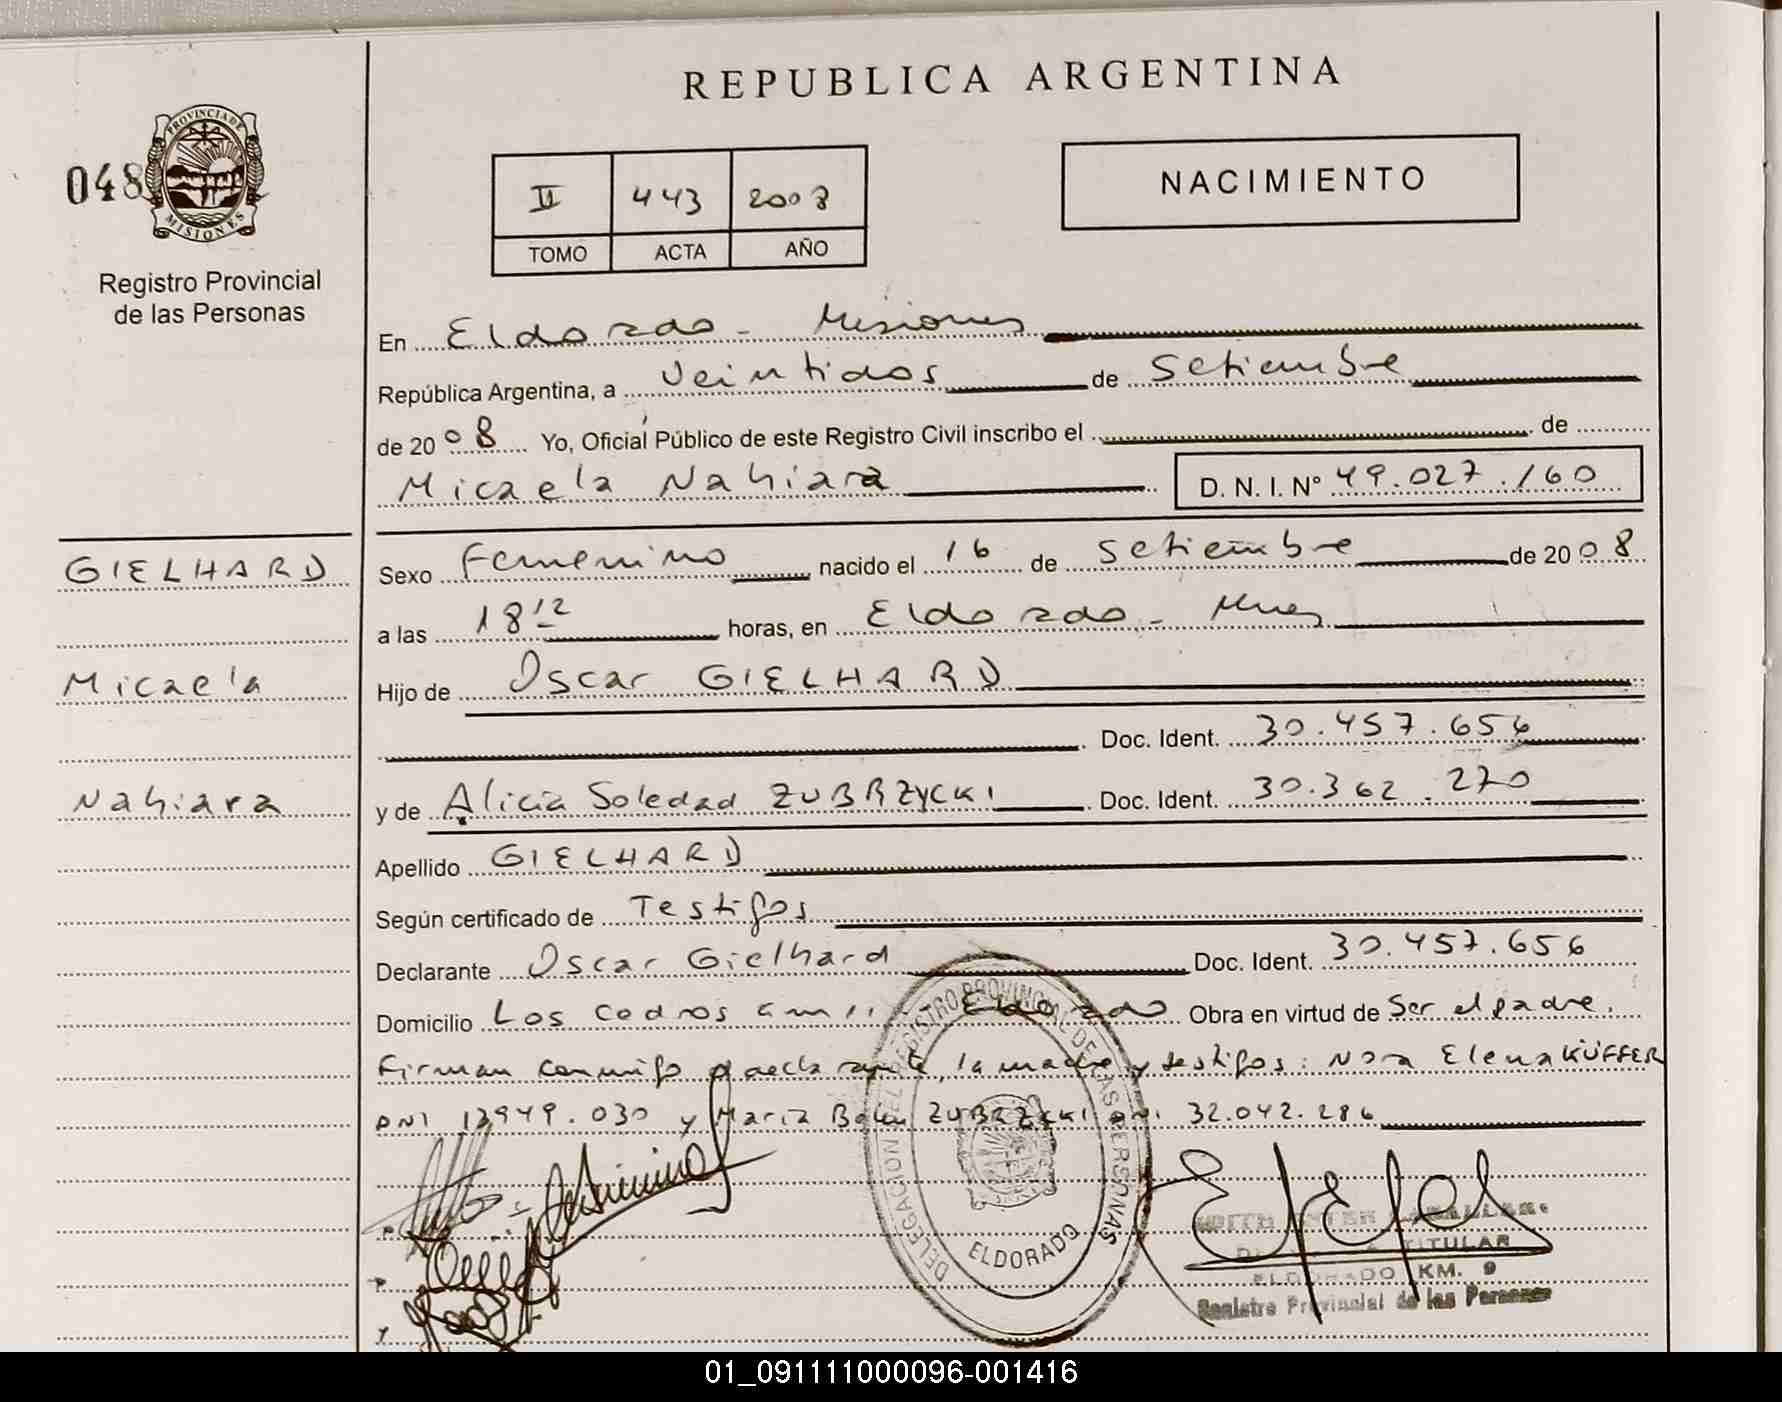 REPUBLICA ARGENTINA
048
PROVINCIA DE
MISIONES
Registro Provincial
de las Personas
II 443 2008
TOMO ACTA AÑO
NACIMIENTO
En Eldorado - Misiones
República Argentina, a veintidos de Setiembre
de 2008 Yo, Oficial Público de este Registro Civil inscribo el de
Micaela Nahiara D. N. I. N° 49.027.160
GIELHARD
Micaela
Nahiara
Sexo Femenino nacido el 16 de Setiembre de 2008
a las 18'12 horas, en Eldorado - Mnes
Hijo de Oscar GIELHARD
Doc. Ident. 30.457.656
y de Alicia Soledad ZUBRZYCKI Doc. Ident. 30.362.270
Apellido GIELHARD
Según certificado de Testigos
Declarante Oscar Gielhard Doc. Ident. 30.457.656
Domicilio Los cedros Eldorado Obra en virtud de Ser el padre.
Firman conmigo el declarante, la madre y testigos: Nora Elena KÜFFER
DNI 12949.030 y Maria Belen ZUBRZYCKI DNI 32.042.286
DELEGACION DEL REGISTRO PROVINCIAL DE LAS PERSONAS
ELDORADO
TITULAR
ELDORADO KM. 9
Registro Provincial de las Personas
01_091111000096-001416